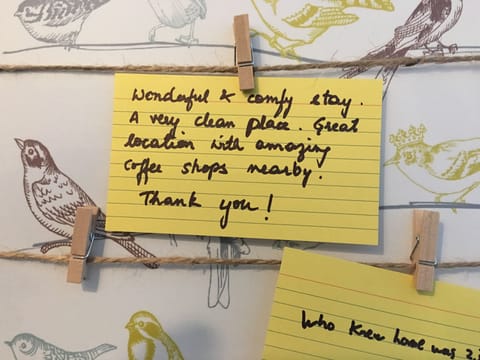 Wonderful & comfy stay.
A very clean place. Great
location with amazing
coffee shops nearby.
Thank you!
Who knew home was